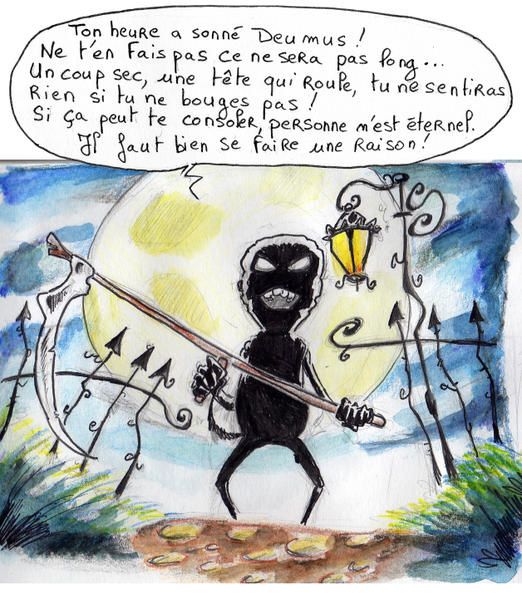 Ton heure a sonné Deumus !
Ne t'en fais pas ce ne sera pas long...
Un coup sec, une tête qui roule, tu ne sentiras
Rien si tu ne bouges pas !
Si ça peut te consoler, personne n'est éternel.
Il faut bien se faire une raison !